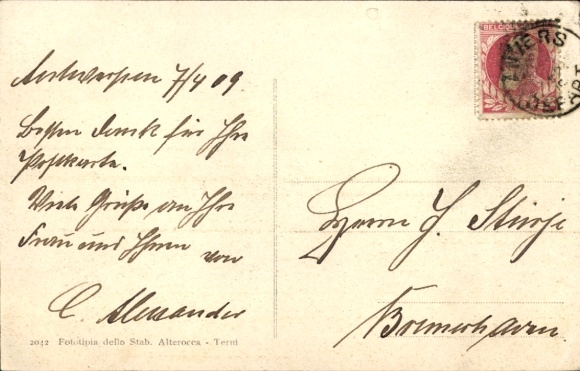 Antwerpen 7/4 09.
Besten Dank für Ihre
Postkarte.
Viele Grüße an Ihre
Frau und Ihnen von
C. Alexander
2042 Fototipia dello Stab. Alterocca - Terni
BELGIQUE
Herrn J.
Bremerhaven.